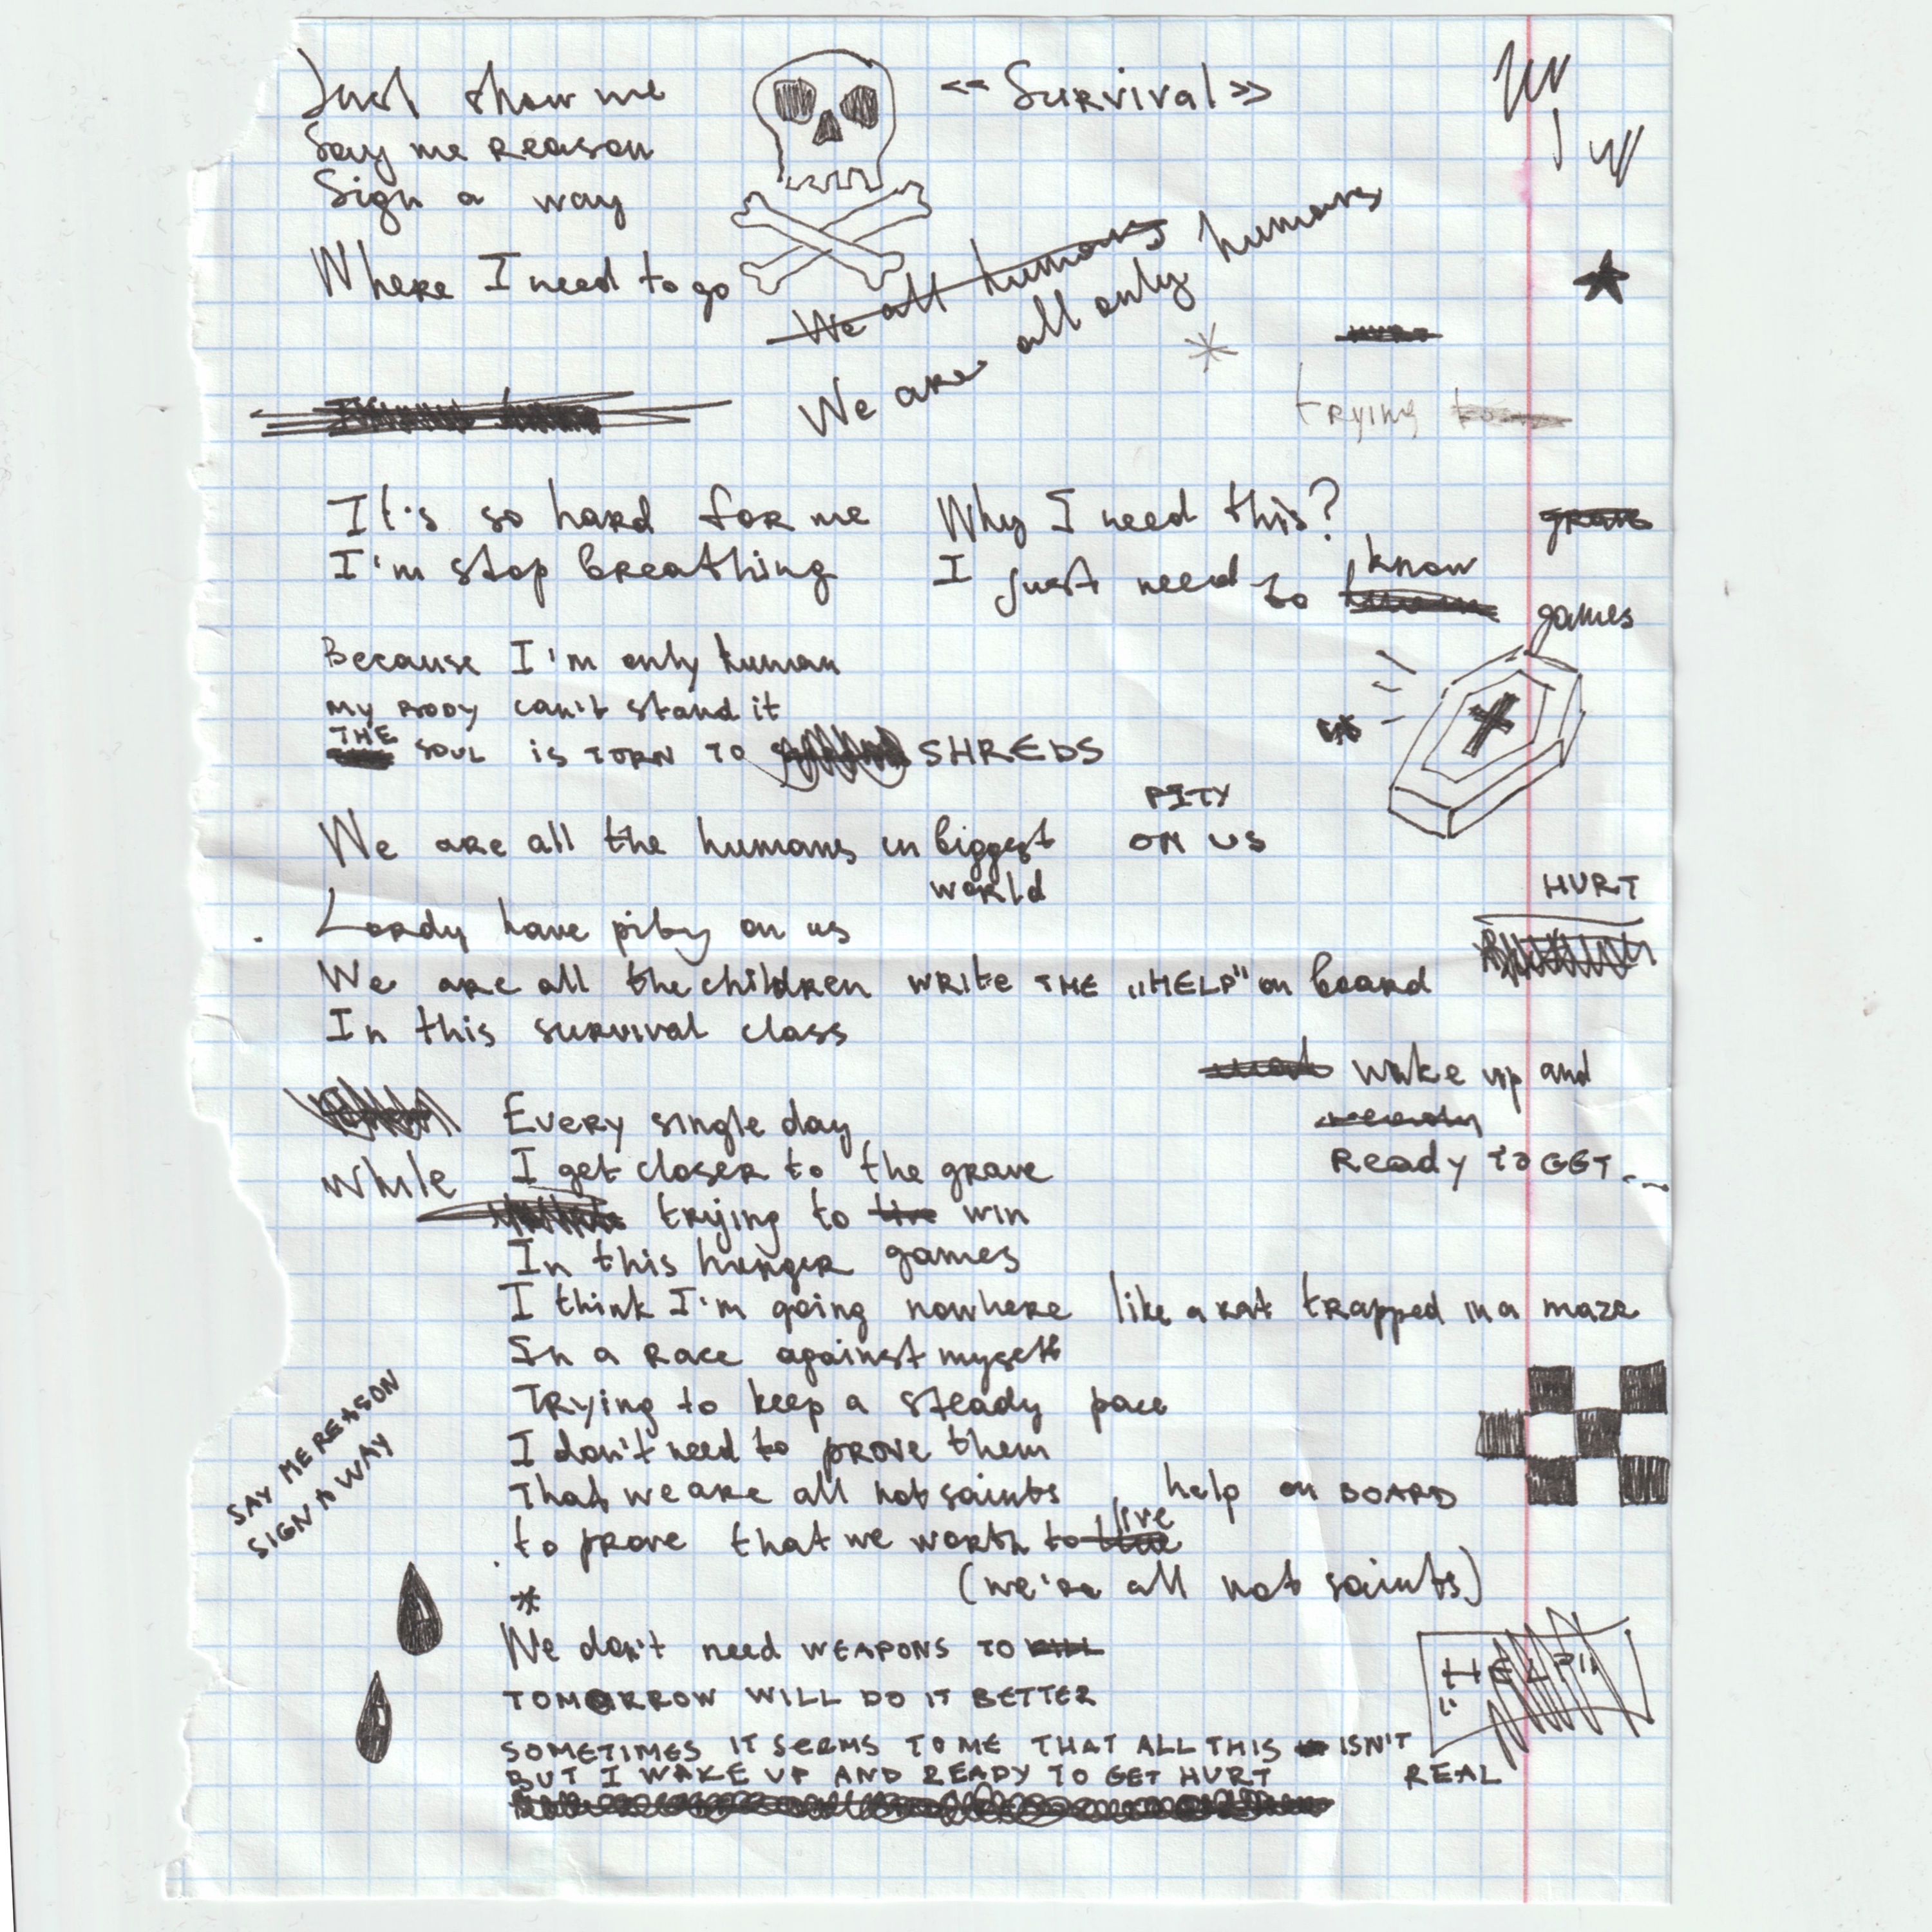 Just show me
<< Survival >>
Say me reason
Sign a way
Where I need to go
We all humans
We are all only humans
trying to
It's so hard for me
Why I need this?
I'm stop breathing
I just need to know
grave
games
Because I'm only human
my BODY can't stand it
THE SOUL IS TORN TO SHREDS
PITY
ON US
We are all the humans in biggest
world
HURT
Lordy have pity on us
We are all the children WRITE THE „HELP" on board
In this survival class
wake up and
ready
Ready TO GET...
Every single day
While I get closer to the grave
trying to live win
In this hunger games
I think I'm going nowhere like a rat trapped in a maze
In a race against myself
Trying to keep a steady pace
I don't need to prove them
That we are all not saints
help on BOARD
to prove that we worth to live
(we're all not saints)
SAY ME REASON
SIGN A WAY
*
We don't need WEAPONS TO KILL
TOMORROW WILL DO IT BETTER
"HELP"
SOMETIMES IT SEEMS TO ME THAT ALL THIS ISN'T
REAL
BUT I WAKE UP AND READY TO GET HURT